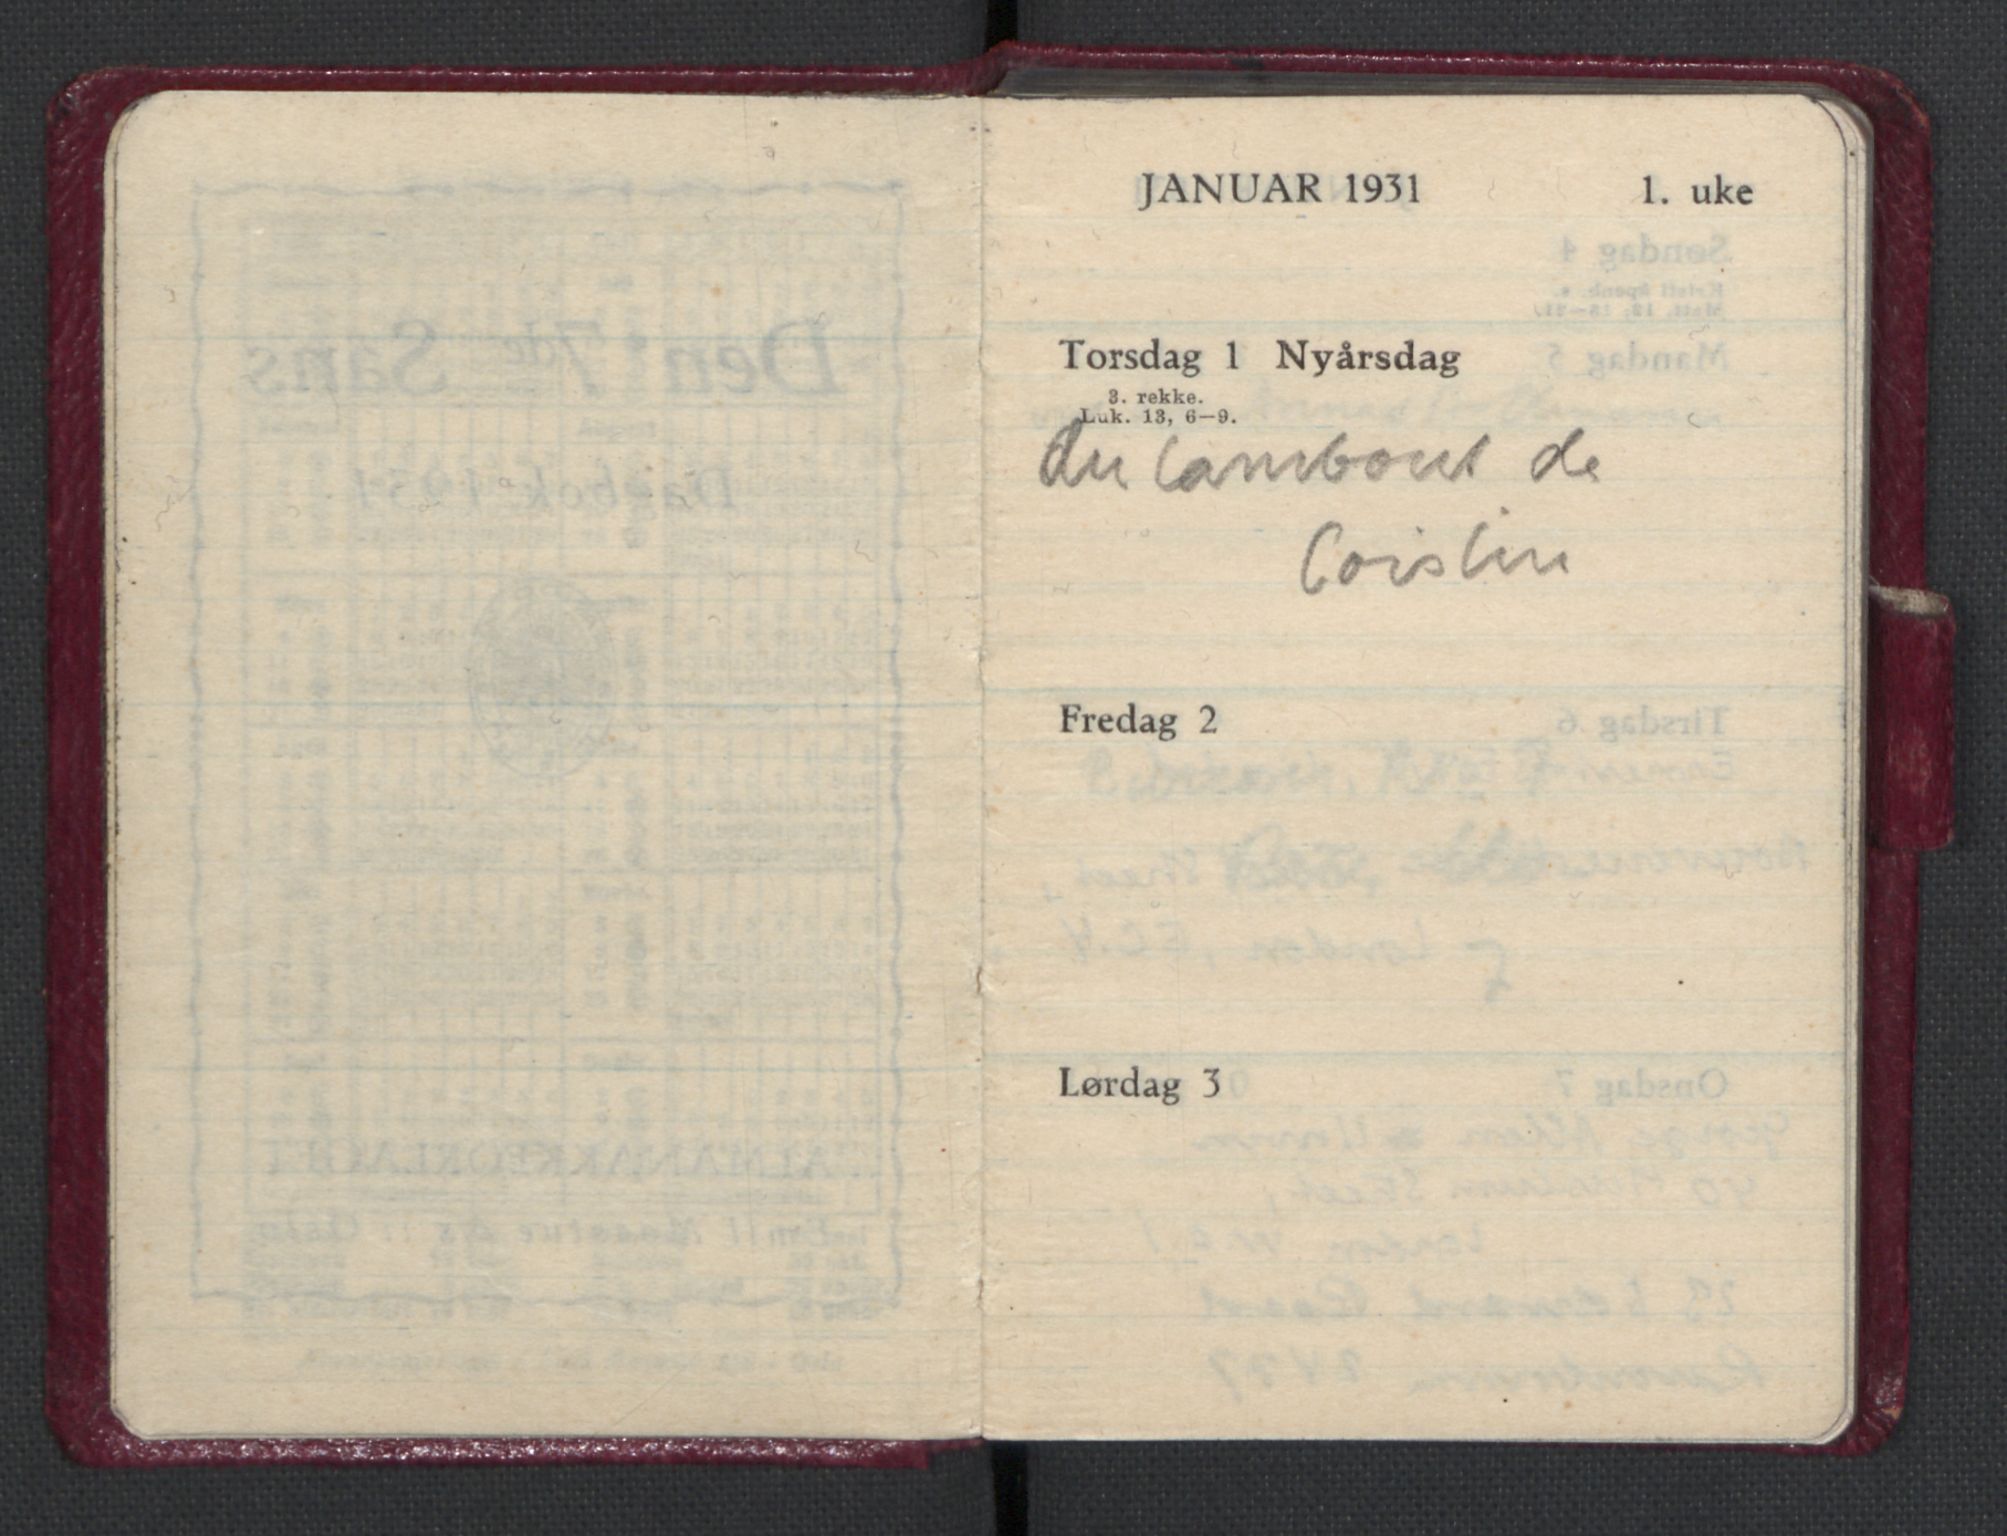 JANUAR 1931 1. uke
Torsdag 1 Nyårsdag
3. rekke.
Luk. 13, 6—9.
du Cambout de
Coislin
Fredag 2
Lørdag 3